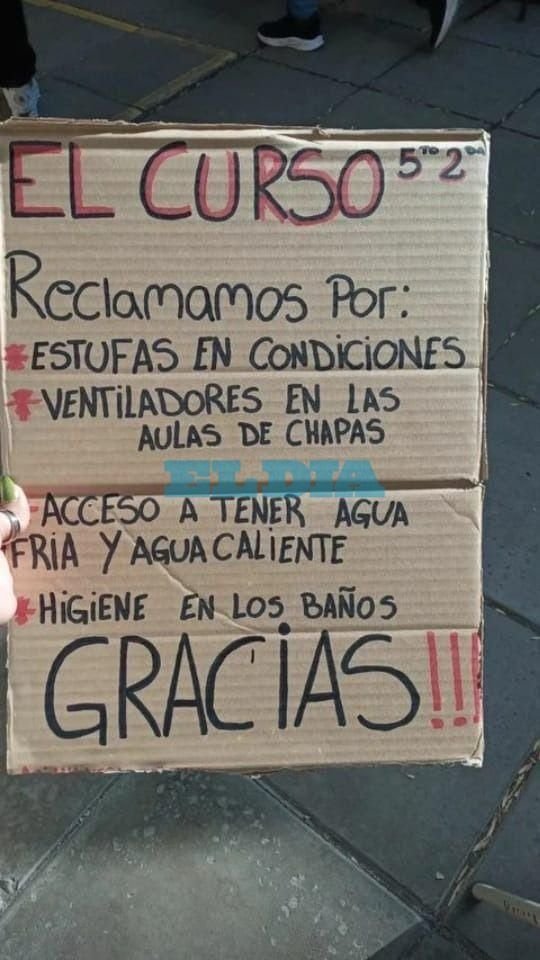 EL CURSO 5to 2da
Reclamamos Por:
*ESTUFAS EN CONDICIONES
*VENTILADORES EN LAS
AULAS DE CHAPAS
EL DIA
*ACCESO A TENER AGUA
FRIA Y AGUA CALIENTE
*HIGIENE EN LOS BAÑOS
GRACIAS!!!